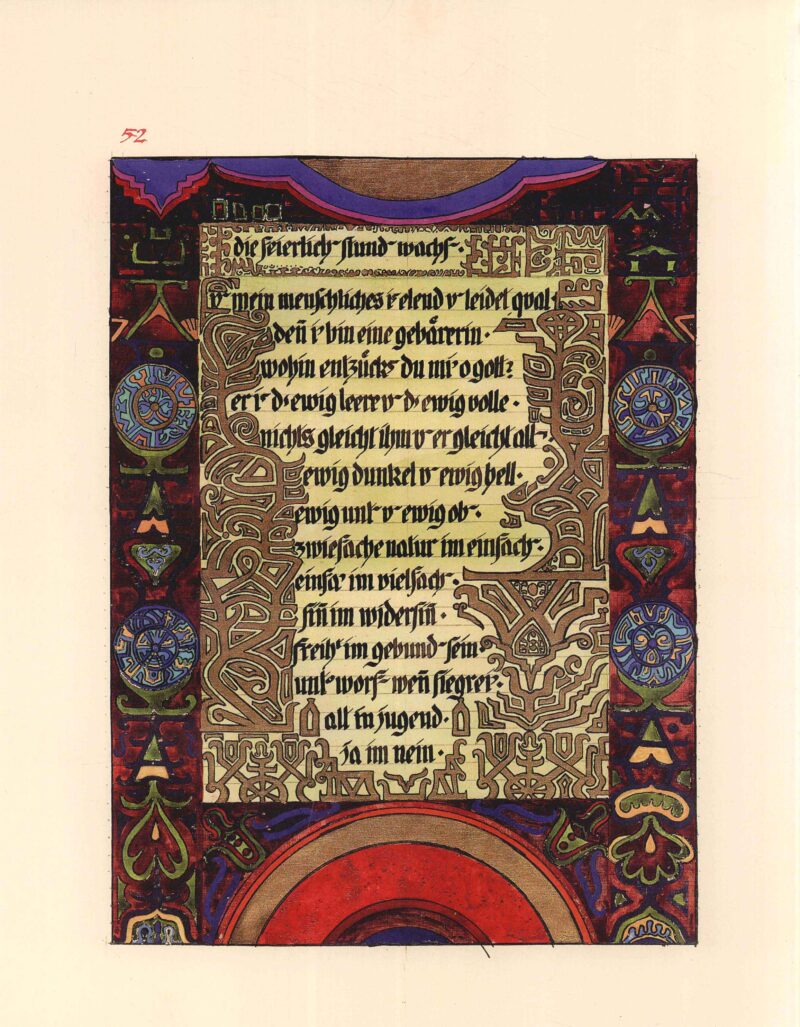 52
die feierlich stund wachs·
v mein menschliches i elend v leidet qual·
deñ i bin eine gebärerin·
wohin entzücks du mir o gott?
er i d ewig leere v d ewig volle·
nichts gleicht ihm v er gleicht all·
ewig dunkel v ewig hell·
ewig unt v ewig ob·
zwiefache natur im einfach·
einfa im vielfach·
siñ im widersiñ·
freiht im gebund sein·
unt worf weñ siegrei·
alt in jugend·
ja im nein·